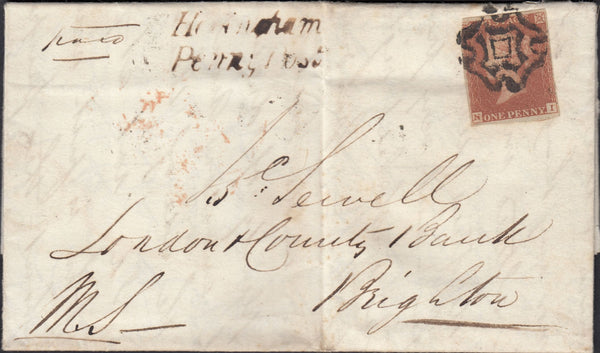 paid
Penny Post
ONE PENNY
K I
Sewell
London & County Bank
MS
Brighton